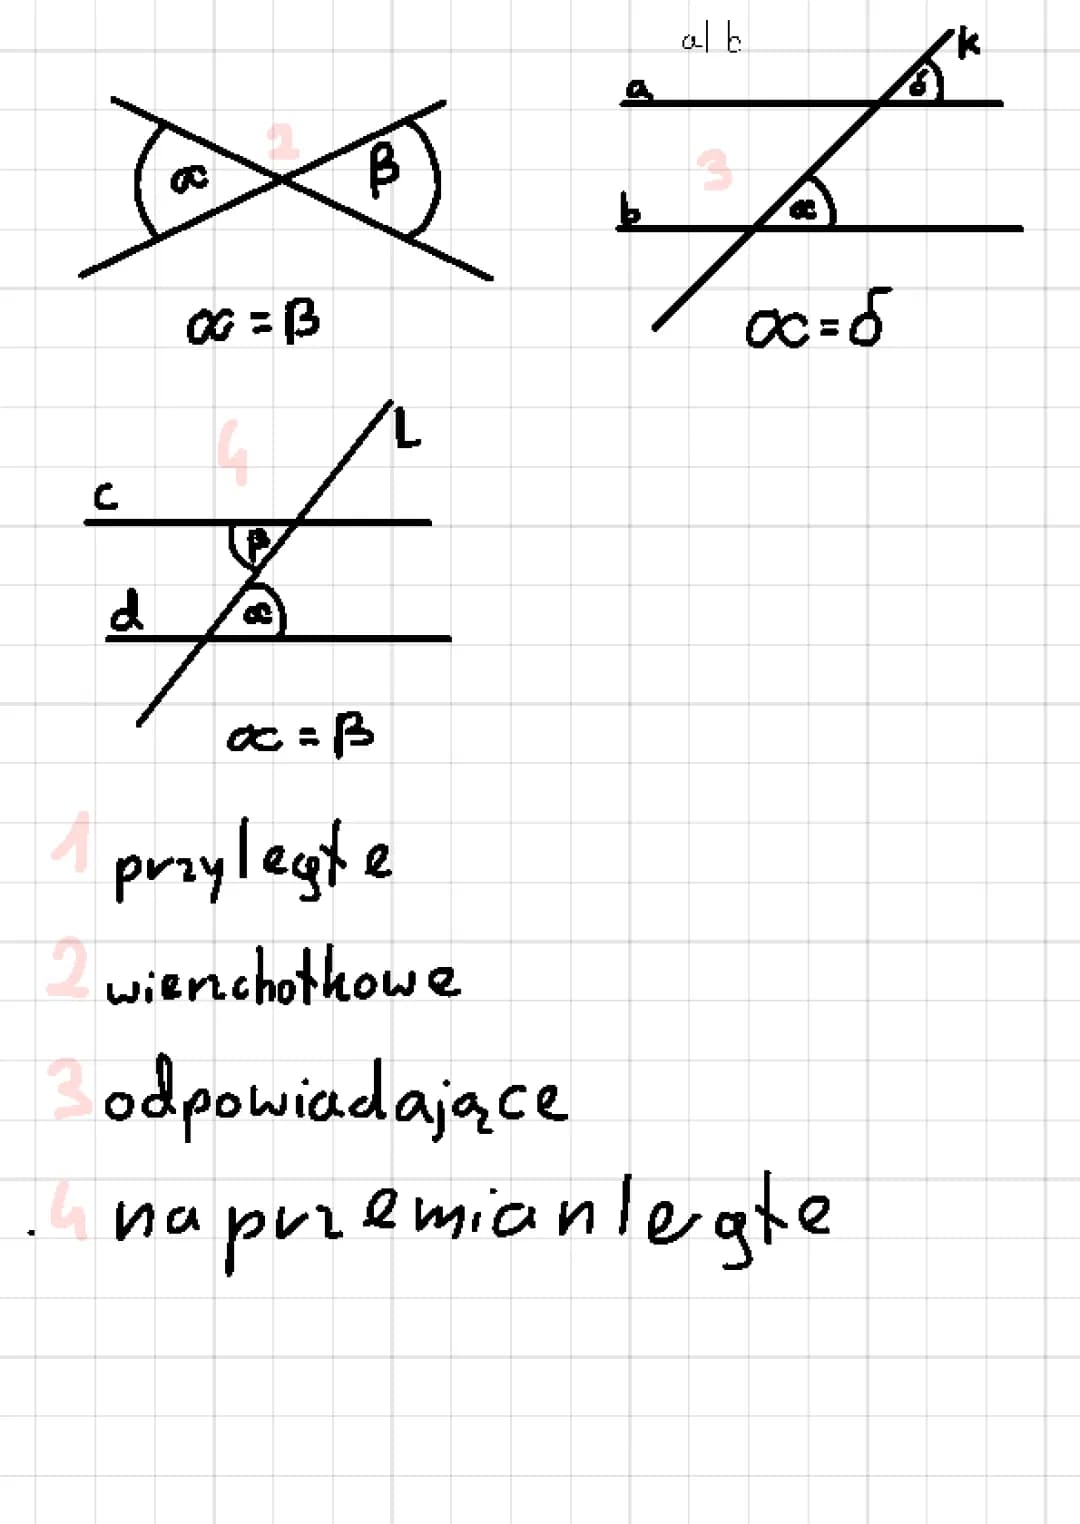 a| b
k
a
δ
2
α
β
3
b
α
α = β
α = δ
4
L
c
β
d
α
α = β
1 przyległe
2 wierzchołkowe
3 odpowiadające
4 naprzemianległe